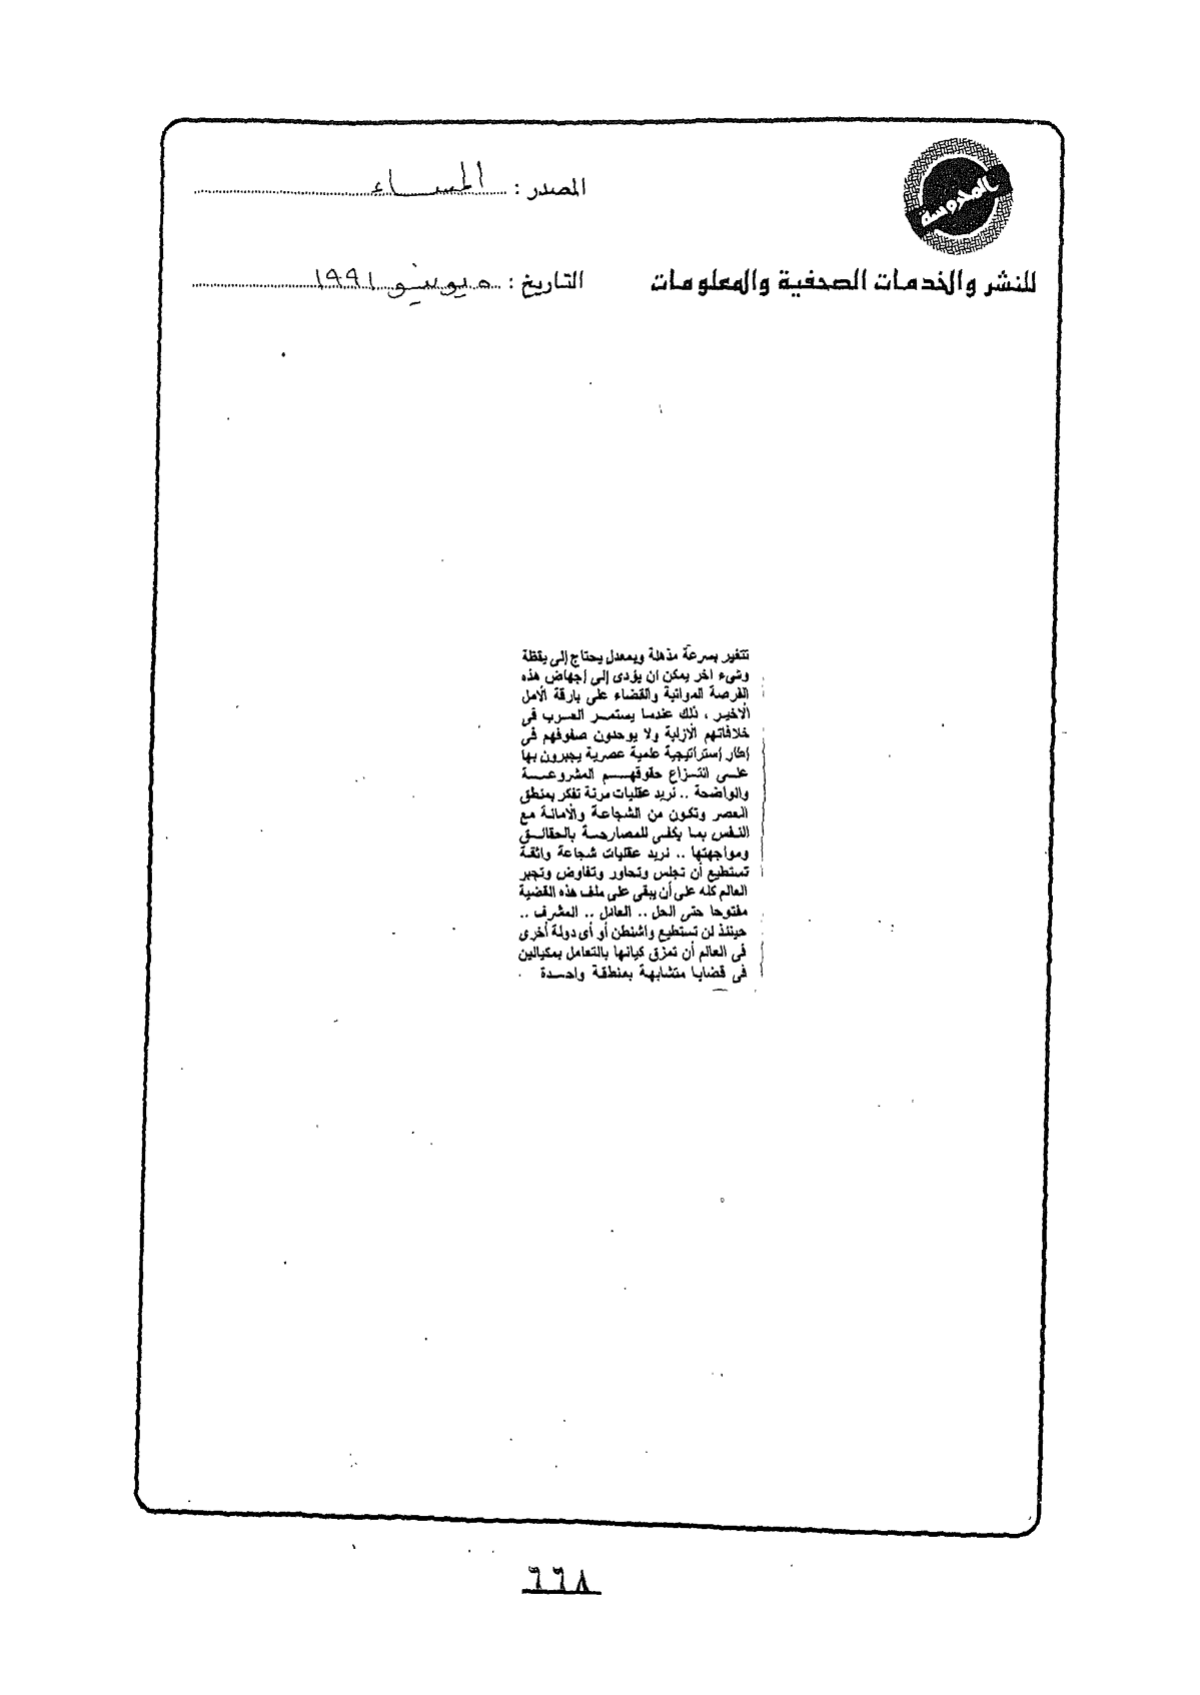 المحروسة
للنشر والخدمات الصحفية والمعلومات
المصدر : المساء
التاريخ : ٥ يونيو ١٩٩١
تتغير بسرعة مذهلة وبمعدل يحتاج إلى يقظة
وشىء اخر يمكن ان يؤدى إلى إجهاض هذه
الفرصة المواتية والقضاء على بارقة الأمل
الأخير ، ذلك عندما يستمر العرب فى
خلافاتهم الأزلية ولا يوحدون صفوفهم فى
إطار إستراتيجية علمية عصرية يجبرون بها
على انتزاع حقوقهم المشروعة
والواضحة .. نريد عقليات مرنة تفكر بمنطق
العصر وتكون من الشجاعة والأمانة مع
النفس بما يكفى للمصارحة بالحقائق
ومواجهتها .. نريد عقليات شجاعة واثقة
تستطيع أن تجلس وتحاور وتفاوض وتجبر
العالم كله على أن يبقى على ملف هذه القضية
مفتوحا حتى الحل .. العادل .. المشرف ..
حينئذ لن تستطيع واشنطن أو أى دولة أخرى
فى العالم أن تمزق كيانها بالتعامل بمكيالين
فى قضايا متشابهة بمنطقة واحدة .
٦٦٨